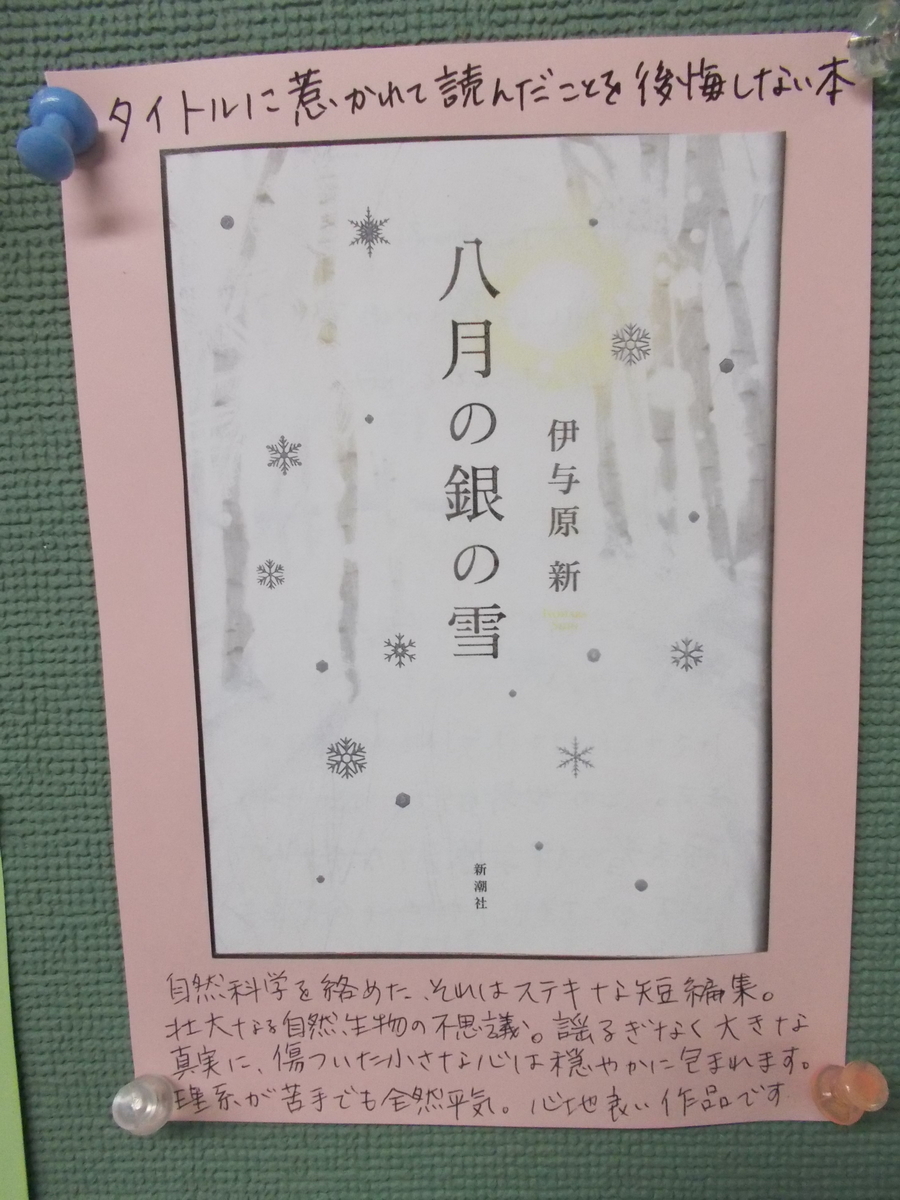 タイトルに惹かれて読んだことを後悔しない本
八月の銀の雪
伊与原 新
新潮社
自然科学を絡めた、それはステキな短編集。
壮大なる自然、生物の不思議。謡るぎなく大きな
真実に、傷ついた小さな心は穏やかに包まれます。
理系が苦手でも全然平気。心地良い作品です